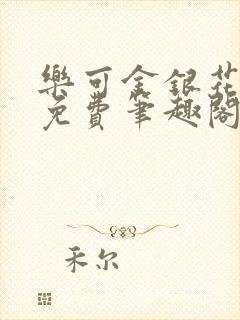 樂可金銀花
免費筆趣閣
禾尔